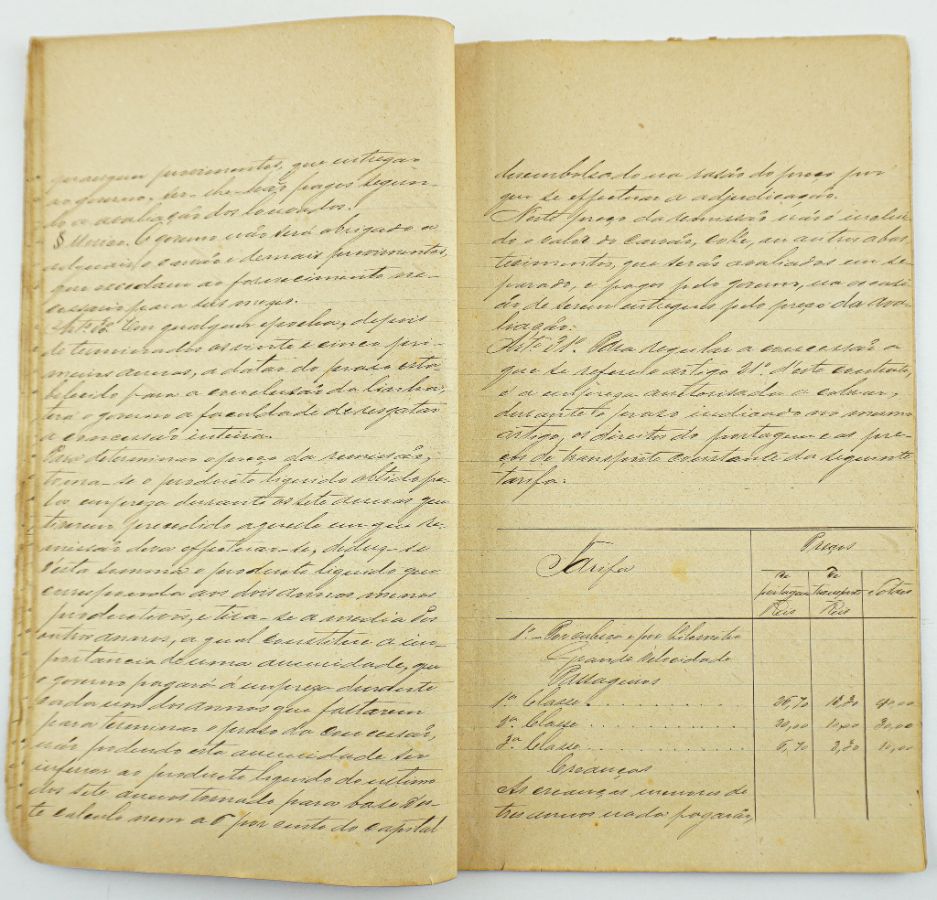 quaesquer provimentos, que entregar
ao governo, ser-lhe-hão pagos segun-
do a avaliação dos louvados.
§ Unico. O governo não será obrigado a
adquirir o carvão e demais provimentos,
que excedam ao fornecimento ne-
cessario para seis mezes.
Em qualquer epocha, depois
de terminados os vinte e cinco pri-
meiros annos, a datar do praso esta-
belecido para a conclusão da linha,
terá o governo a faculdade de resgatar
a concessão inteira.
Para determinar o preço da remissão,
toma-se o producto liquido obtido pe-
la empreza durante os sete annos que
tiverem precedido aquelle em que re-
missão deva effectuar-se, deduz-se
d'esta somma o producto liquido que
corresponda aos dois annos menos
productivos, e tira-se a media dos
outros annos, a qual constitue a im-
portancia de uma annuidade, que
o governo pagará á empreza durante
cada um dos annos que faltarem
para terminar o praso da concessão,
não podendo esta annuidade ser
inferior ao producto liquido do ultimo
dos sete annos tomado para base d'es-
te calculo nem a 5 por cento do capital
desembolsado na rasão do preço por
que se effectuar a adjudicação.
Neste preço da remissão não é inclui-
do o valor do carvão, coke, ou outros abas-
tecimentos, que serão avaliados em se-
parado, e pagos pelo governo, na occasi-
ão de serem entregues pelo preço da ava-
liação.
Artº Para regular a concessão a
que se refere o artigo 21º d'este contracto,
é a empreza authorisada a cobrar,
durante o prazo indicado no mesmo
artigo, os direitos de portagem e os pre-
ços de transporte constante da seguinte
tarifa:
Tarifa Preços
De portagem Reis De transporte Reis Totaes
1º - Por cabeça e por kilometro
Grande Velocidade
Passageiros
1ª Classe 26,70 13,30 40,00
2ª Classe 20,00 10,00 30,00
3ª Classe 6,70 3,30 10,00
Creanças
As creanças menores de
tres annos nada pagarão,